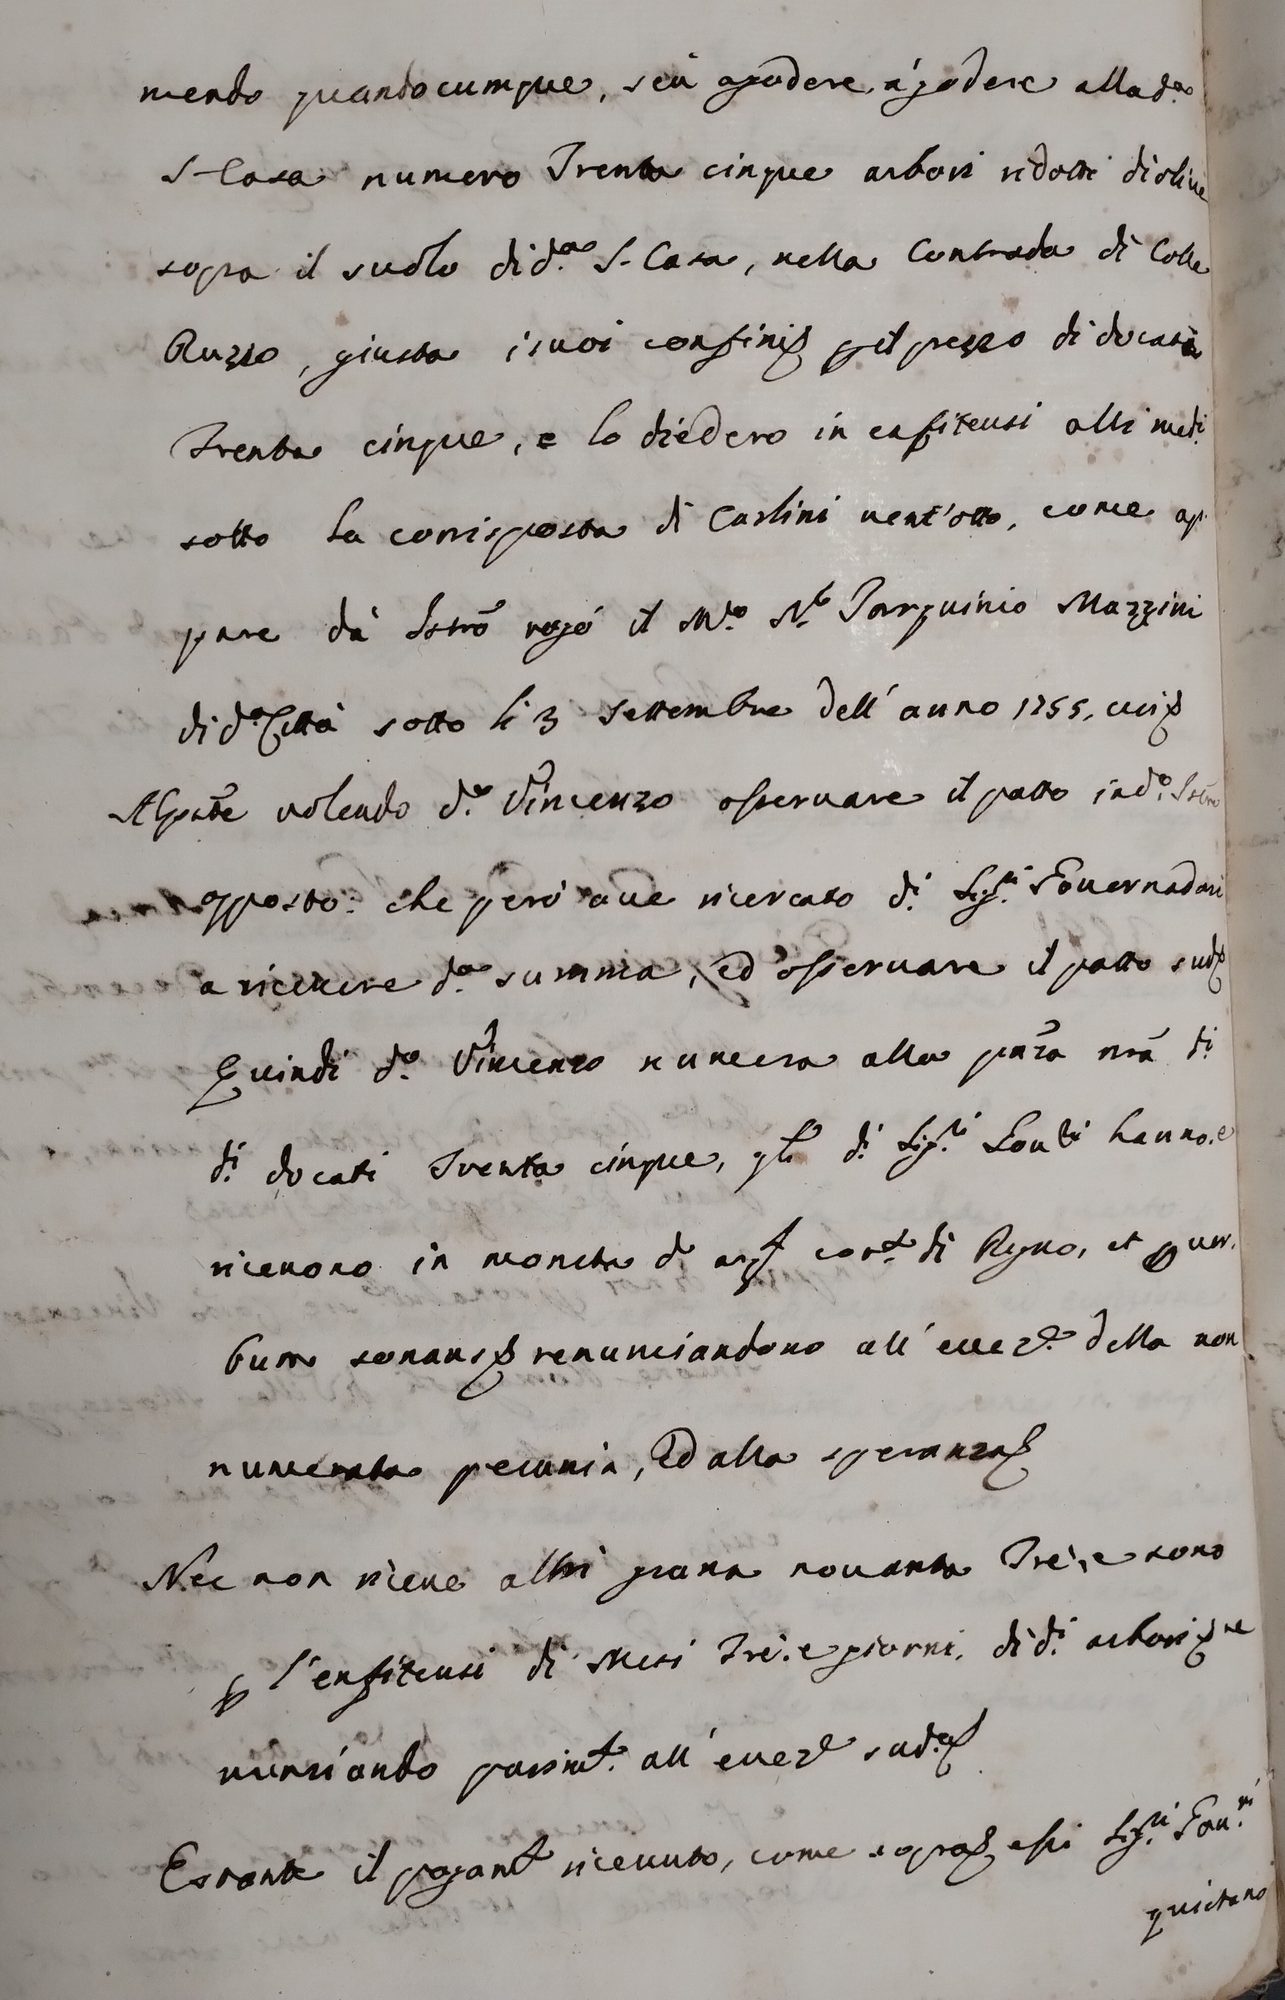 mendo quandocumque, seù a godere, à godere alla d.a
S. Casa numero Trenta cinque arbori ridotti di olive
sopra il suolo di d.a S. Casa, nella Contrada di Colle
Ruzzo, giusta i suoi confini p il prezzo di docati
Trenta cinque, e lo diedero in enfiteusi alli med.i
sotto la corrisposta di Carlini vent'otto, come ap
pare dà Istro rogò il M.co N.r Tarquinio Mazzini
di d.a Città sotto li 3 Settembre dell'anno 1755,
Al pnte volendo d.o Vincenzo osservare il patto in d.o Istro
apposto: che però ave ricercato d.i Sig.ri Governadori
a ricevere d.a summa, ed osservare il patto sud
Quindi d.o Vincenzo numera alla pnza nra di
d.i docati Trenta cinque, qli d.i Sig.ri Gov.ri hanno, e
ricevono in moneta d' arg corr.te di Regno, et p ver.
bum sonans renunciandono all' ecce della non
numerata pecunia, ed alla speranza
Nec non riceve altri grana novanta Trè, e sono
p l'enfiteusi di Mesi Trè, e giorni, di d.i arbori re
nunziando parimt.e all' ecce sud.a
Estante il pagamt.o ricevuto, come sopra essi Sig.ri Gov.ri
quietano